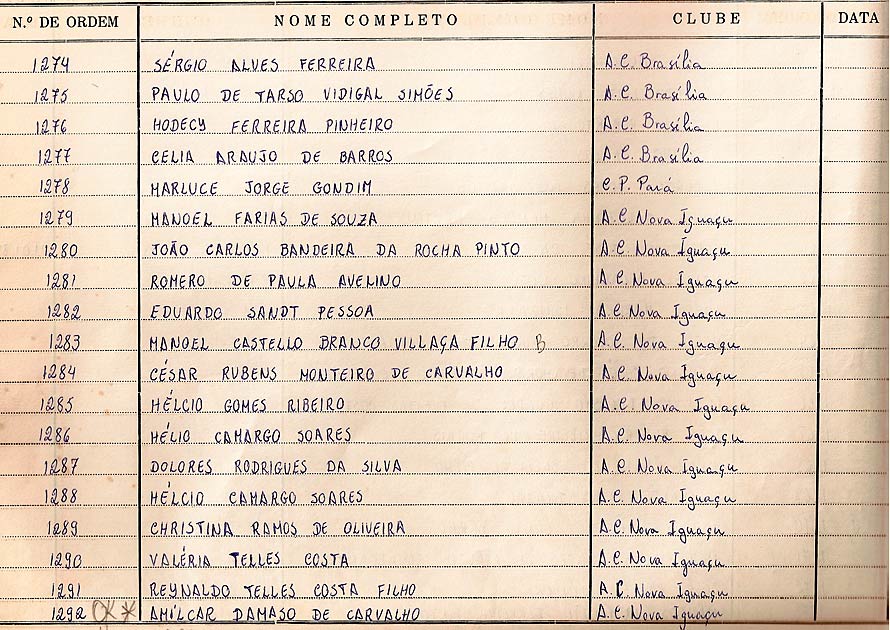 N.º DE ORDEM NOME COMPLETO CLUBE DATA
1274 SÉRGIO ALVES FERREIRA A.C. Brasília
1275 PAULO DE TARSO VIDIGAL SIMÕES A.C. Brasília
1276 HODECY FERREIRA PINHEIRO A.C. Brasília
1277 CELIA ARAUJO DE BARROS A.C. Brasília
1278 MARLUCE JORGE GONDIM C.P. Pará
1279 MANOEL FARIAS DE SOUZA A.C. Nova Iguaçu
1280 JOÃO CARLOS BANDEIRA DA ROCHA PINTO A.C. Nova Iguaçu
1281 ROMERO DE PAULA AVELINO A.C. Nova Iguaçu
1282 EDUARDO SANDT PESSOA A.C. Nova Iguaçu
1283 MANOEL CASTELLO BRANCO VILLAÇA FILHO B A.C. Nova Iguaçu
1284 CÉSAR RUBENS MONTEIRO DE CARVALHO A.C. Nova Iguaçu
1285 HÉLCIO GOMES RIBEIRO A.C. Nova Iguaçu
1286 HÉLIO CAMARGO SOARES A.C. Nova Iguaçu
1287 DOLORES RODRIGUES DA SILVA A.C. Nova Iguaçu
1288 HÉLCIO CAMARGO SOARES A.C. Nova Iguaçu
1289 CHRISTINA RAMOS DE OLIVEIRA A.C. Nova Iguaçu
1290 VALÉRIA TELLES COSTA A.C. Nova Iguaçu
1291 REYNALDO TELLES COSTA FILHO A.C. Nova Iguaçu
1292 OK * AMÍLCAR DAMASO DE CARVALHO A.C. Nova Iguaçu